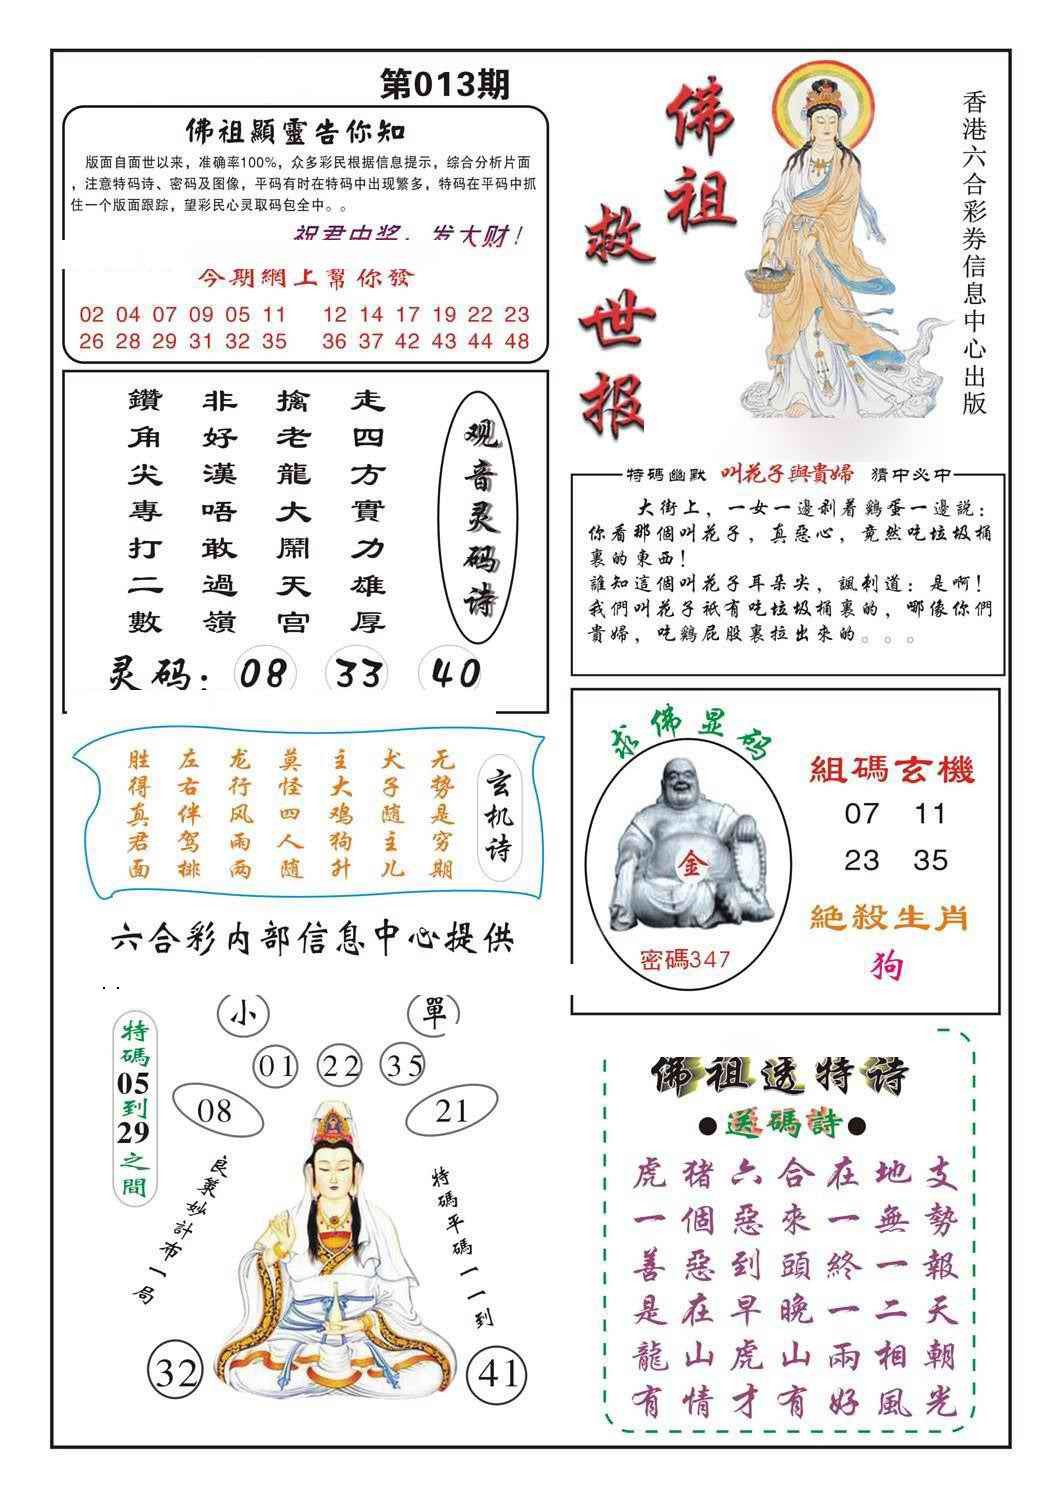 第013期
佛祖顯靈告你知
版面自面世以来，准确率100%，众多彩民根据信息提示，综合分析片面
，注意特码诗、密码及图像，平码有时在特码中出现繁多，特码在平码中抓
住一个版面跟踪，望彩民心灵取码包全中。。
祝君中奖，发大财！
今期網上幫你發
02 04 07 09 05 11 12 14 17 19 22 23
26 28 29 31 32 35 36 37 42 43 44 48
佛祖
救世报
香港六合彩券信息中心出版
观音灵码诗
走四方實力雄厚
擒老龍大鬧天宫
非好漢唔敢過嶺
鑽角尖專打二數
灵码：08 33 40
特碼幽默 叫花子與貴婦 猜中必中
大街上，一女一邊剥着鷄蛋一邊説：
你看那個叫花子，真惡心，竟然吃垃圾桶
裏的東西！
誰知這個叫花子耳朵尖，諷刺道：是啊！
我們叫花子衹有吃垃圾桶裏的，哪像你們
貴婦，吃鷄屁股裏拉出來的。。。
玄机诗
无势是穷期
犬子随主儿
主大鸡狗升
莫怪四人随
龙行风雨两
左右伴驾排
胜得真君面
求佛显码
金
密碼347
組碼玄機
07 11
23 35
絶殺生肖
狗
六合彩内部信息中心提供
特碼05到29之間
小 單
01 22 35
08 21
良策妙計布一局
特碼平碼一一到
32 41
佛祖透特诗
●送碼詩●
虎猪六合在地支
一個惡來一無勢
善惡到頭終一報
是在早晚一二天
龍山虎山兩相朝
有情才有好風光